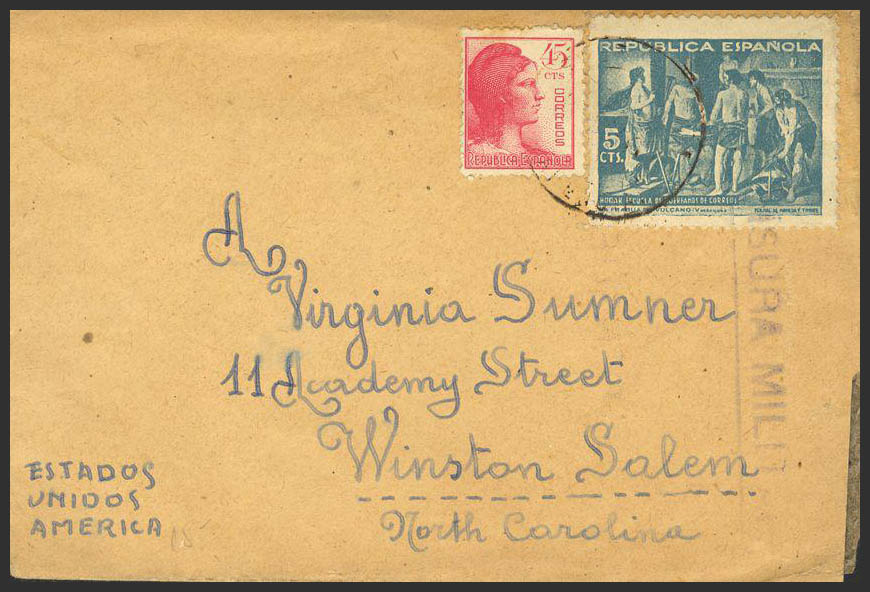 45
CTS
CORREOS
REPUBLICA ESPAÑOLA
REPUBLICA ESPAÑOLA
5
CTS.
HOGAR ESCUELA DE HUERFANOS DE CORREOS
LA FRAGUA DE VULCANO-Velázquez
SURA MILI
A
Virginia Sumner
11 Academy Street
Winston Salem
North Carolina
ESTADOS
UNIDOS
AMERICA